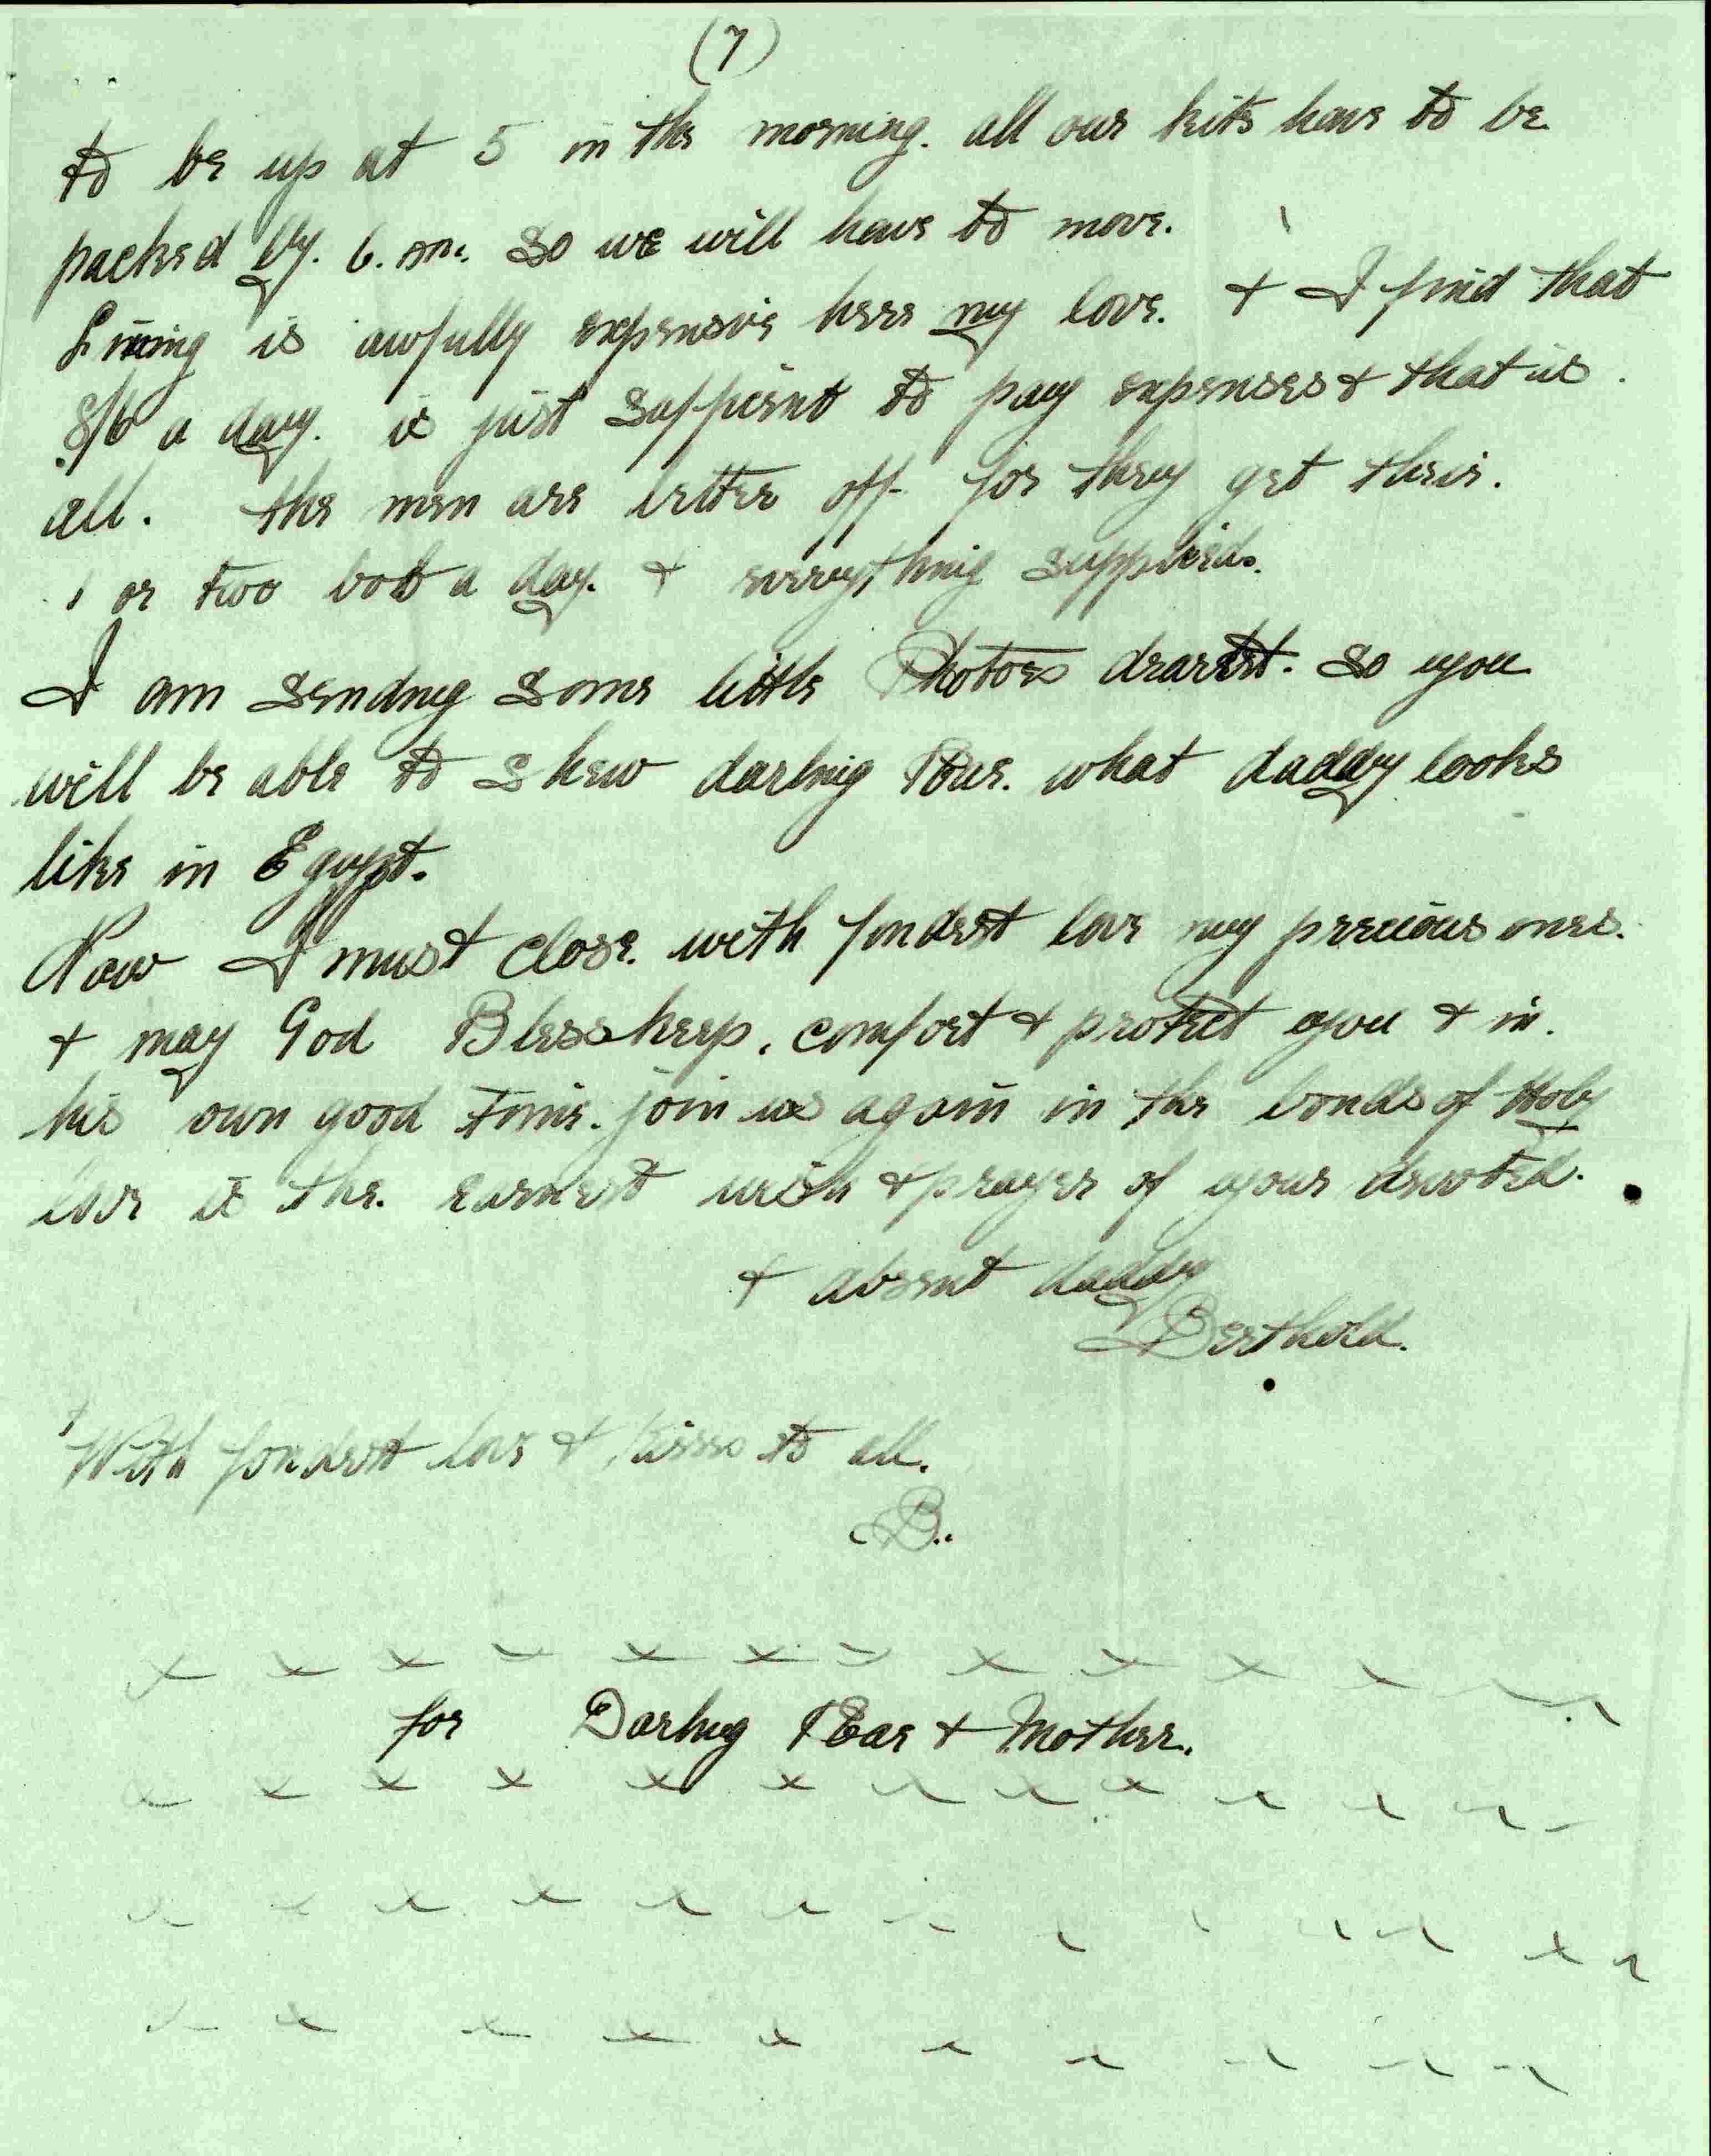 (7)
to be up at 5 in the morning. all our kits have to be
packed by. 6. am. so we will have to move.
Living is awfully expensive here my love. + I find that
8/6 a day. is just sufficent to pay expenses + that is.
all. the men are better off for they get their.
1 or two bob a day. + everything supplied.
I am sending some little Photoes dearest. so you
will be able to shew darling what daddy looks
like in Egypt.
Now I must close. with fondest love my precious ones.
+ may God Bless keep. comfort + protect you + in.
his own good time. join us again in the bonds of Holy
love is the. earnest wish + prayer of your devoted.
+ absent daddy
Berthold.
With fondest love + kisses to all.
B.
x x x x x x x x x x x x
for Darling + Mother.
x x x x x x x x x x x x
x x x x x x x x x x x x x
x x x x x x x x x x